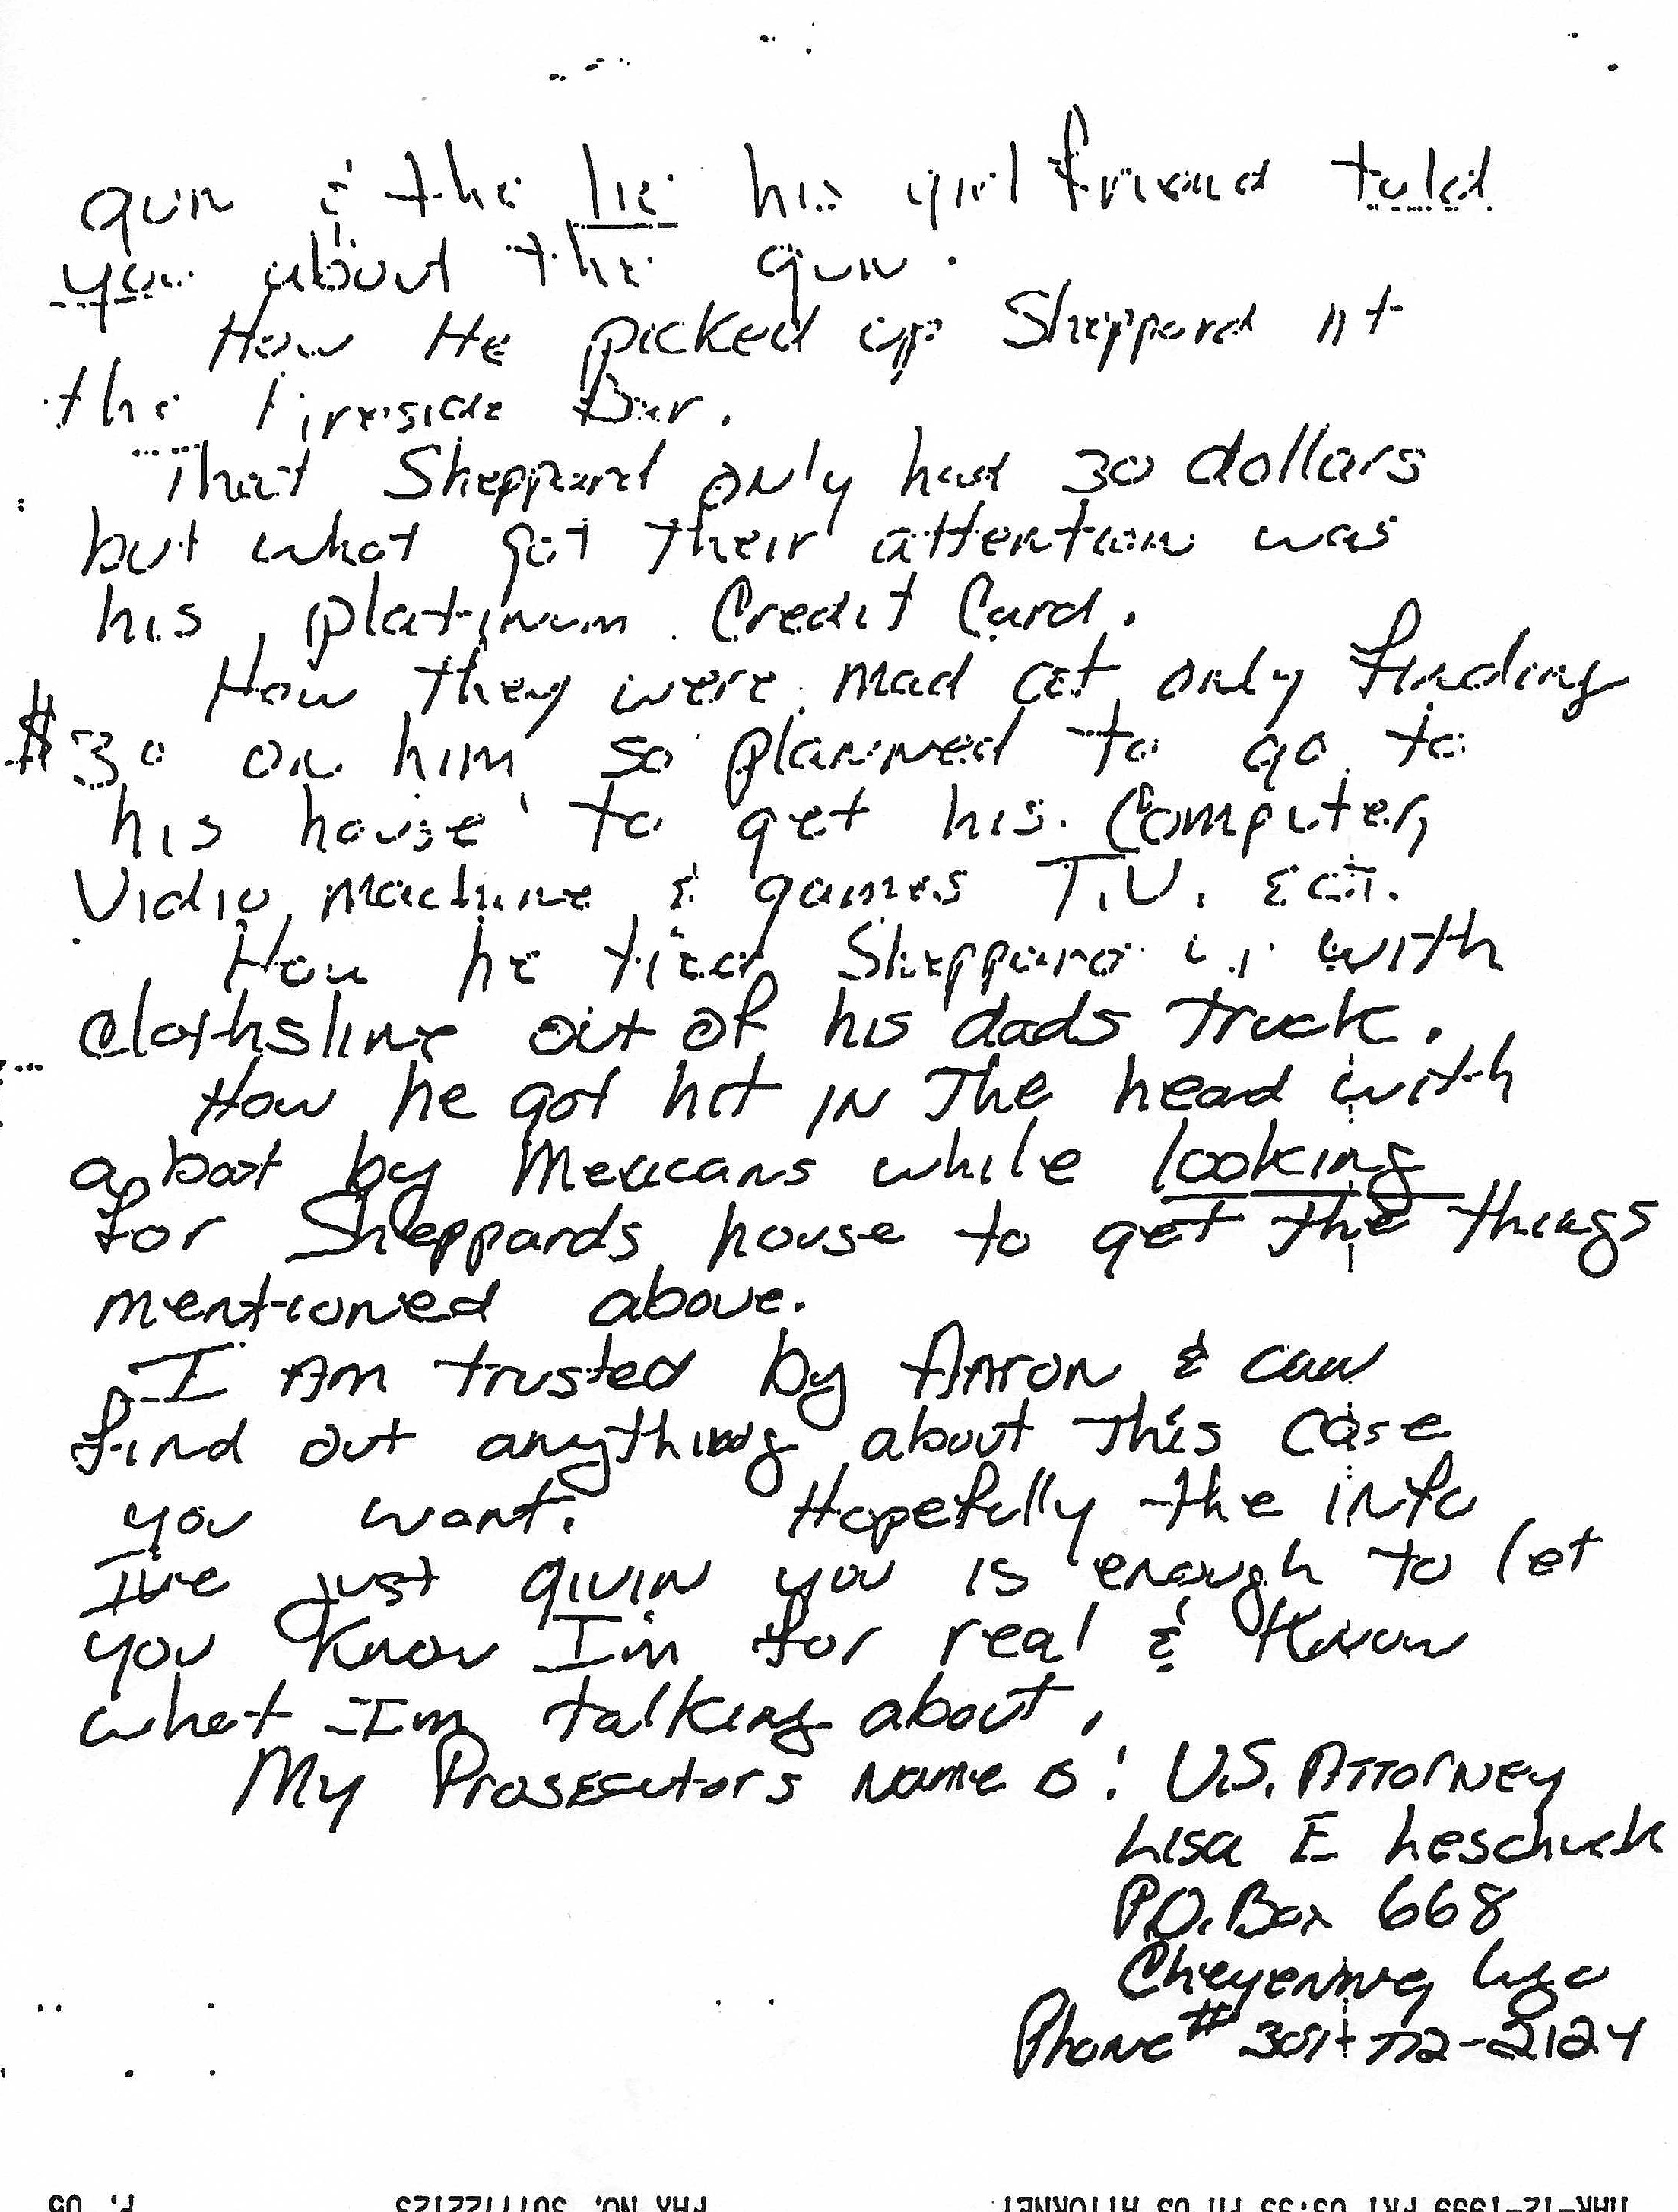 gun & the lie his girl friend told
you about the gun.
How He picked up Sheppard at
the Fireside Bar.
That Sheppard only had 30 dollars
but what got their attention was
his platinum Credit Card.
How they were mad at only finding
$30 on him so planned to go to
his house to get his Computer,
Vidio machine & games T.V. Ect.
How he tied Sheppard up with
Clothsline out of his dads Truck.
How he got hit IN The head with
a bat by Mexicans while looking
for Sheppards house to get the things
mentioned above.
I Am trusted by Aaron & can
find out anything about This Case
you want. Hopefully the info
I've just givin you is enough to let
you Know I'm for real & Know
what I'm talking about.
My Prosecutors Name is: U.S. Attorney
Lisa E Leschuck
P.O. Box 668
Cheyenne, Wyo
Phone # 307-772-2124
MAR-12-1999 FRI 03:35 PM US ATTORNEY FAX NO. 3077722123 P. 05